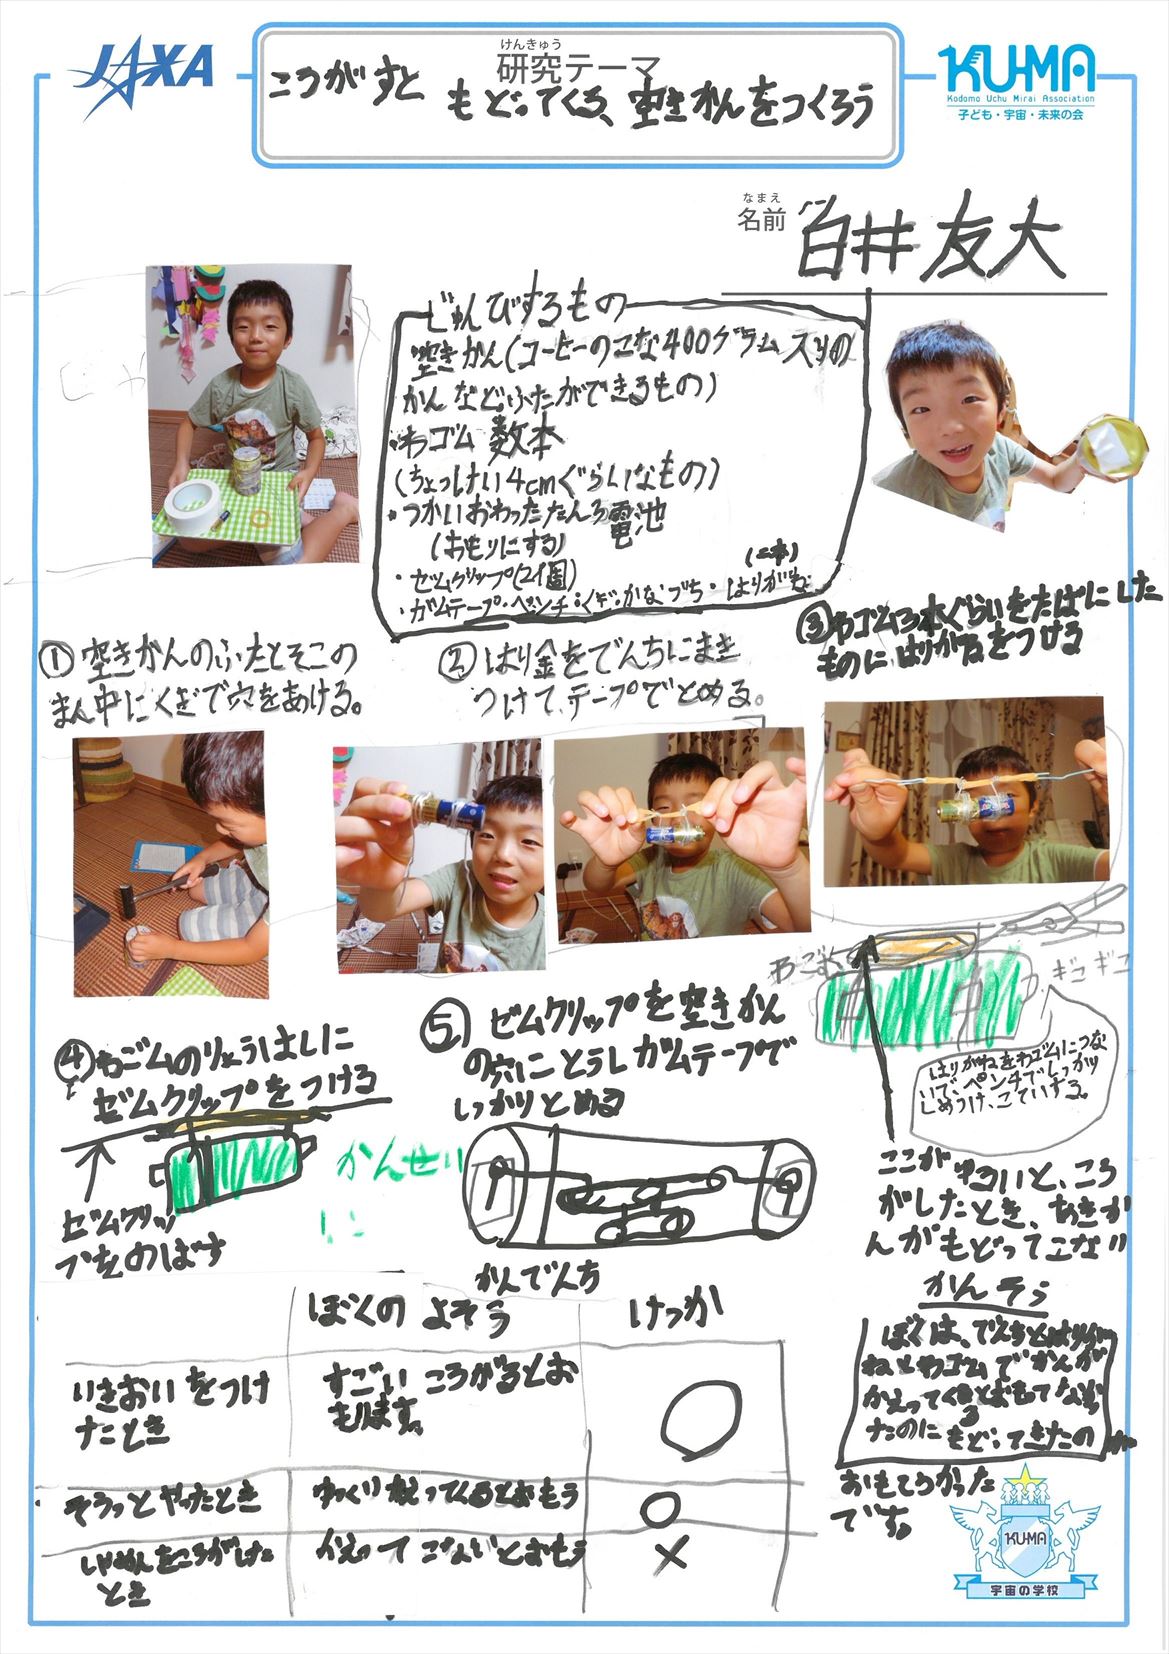 JAXA
けんきゅう
研究テーマ
ころがすと もどってくる、空きかんをつくろう
KUMA
Kodomo Uchu Mirai Association
子ども・宇宙・未来の会
なまえ
名前
白井友大
じゅんびするもの
空きかん(コーヒーのこな400グラム入りの
かんなどふたができるもの)
・わゴム 数本
(ちょっけい4cmぐらいなもの)
・つかいおわったたんろ電池
(おもりにする)
・ゼムクリップ(2個)
(二本)
・ガムテープ・ペンチ・くぎ・かなづち・はりがね
①空きかんのふたとそこの
まん中にくぎで穴をあける。
②はり金をでんちにまき
つけて、テープでとめる。
③わゴム3本ぐらいをたばにした
ものにはりがねをつける
④わゴムのりょうはしに
ゼムクリップをつける
ゼムクリッ
プをのばす
かんせい
に
⑤ゼムクリップを空きかん
の穴にとうしガムテープで
しっかりとめる
かんでんち
わごむ
ぎこぎこ
はりがねをわゴムにつな
いで、ペンチでしっかり
しめつけ、こていする。
ここが ゆるいと、ころ
がしたとき、あきか
んがもどってこない
ぼくの よそう
けっか
いきおいをつけ
たとき
すごい ころがるとお
もいます。
○
そうっとやったとき
ゆっくり 教えってくるとおもう
○
しゃめんをころがした
とき
かえって こないとおもう
×
かんそう
ぼくは、でんちとはりが
ねとわゴムでかんが
かえってくるとおもてなかっ
たのに もどってきたのが
おもしろかった
です。
KUMA
宇宙の学校